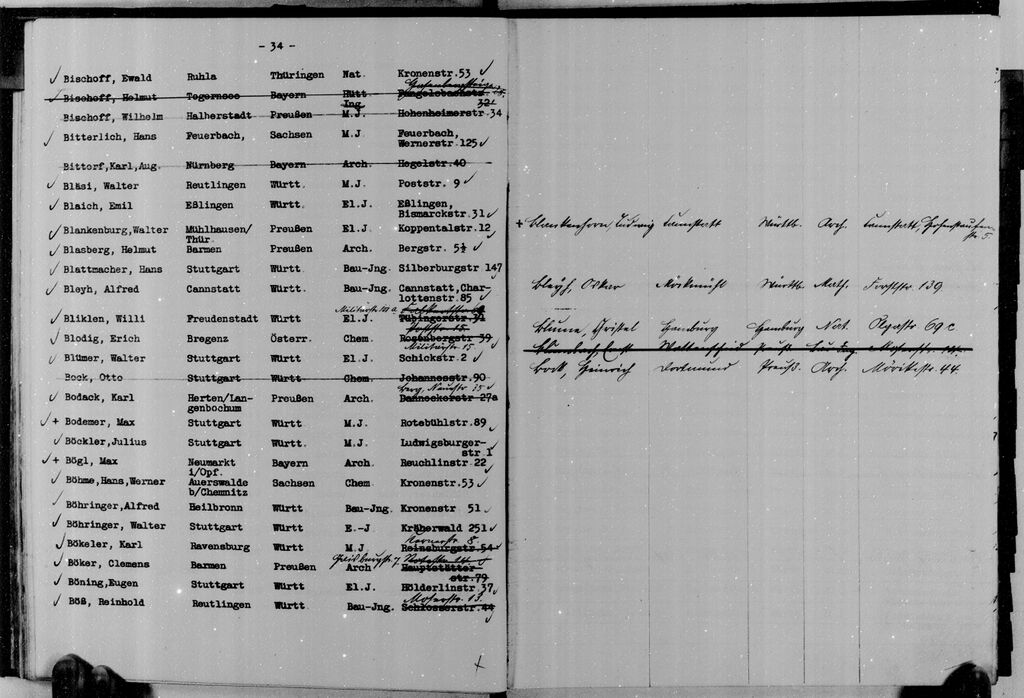 - 34 -
✓ Bischoff, Ewald Ruhla Thüringen Nat. Kronenstr.53 ✓
✓ Bischoff, Helmut Tegernsee Bayern Hütt. Ing
32
Bischoff, Wilhelm Halberstadt Preußen M.J. Hohenheimerstr 34
✓ Bitterlich, Hans Feuerbach, Sachsen M.J Feuerbach,
Wernerstr 125 ✓
Bittorf,Karl,Aug. Nürnberg Bayern Arch. Hegelstr.40
✓ Bläsi, Walter Reutlingen Württ. M.J. Poststr. 9 ✓
✓ Blaich, Emil Eßlingen Württ. El.J. Eßlingen,
Bismarckstr.31 ✓
✓ Blankenburg,Walter Mühlhausen/ Preußen El.J. Koppentalstr.12 ✓
Thür.
+ Blankenhorn, Ludwig Cannstatt Württb. Arch. Cannstatt, Hohenstaufen-
str. 5.
✓ Blasberg, Helmut Barmen Preußen Arch. Bergstr. 5½ ✓
✓ Blattmacher, Hans Stuttgart Württ. Bau-Jng. Silberburgstr 147
✓ Bleyh, Alfred Cannstatt Württ. Bau-Jng. Cannstatt,Char-
lottenstr.85 ✓
Bleyh, Oskar Möckmühl Württb. Math. Forststr. 139
Militärstr. 111 a
✓ Bliklen, Willi Freudenstadt Württ El.J. Tübingerstr.31
Blume, Christel Hamburg Hamburg Nat. Olgastr 69 c
Poststr. 15
✓ Blodig, Erich Bregenz Österr. Chem. Rosenbergstr.39
Militärstr. 15
✓ Blümer, Walter Stuttgart Württ El.J Schickstr 2 ✓
Bock, Otto Stuttgart Württ Chem. Johannesstr.90
Bock, Heinrich Dortmund Preuß. Arch. Mörikestr. 44.
✓ Bodack, Karl Herten/Lan- Preußen Arch. Danneckerstr 27a
genbochum
✓ + Bodemer, Max Stuttgart Württ M.J. Rotebühlstr.89 ✓
✓ Böckler,Julius Stuttgart Württ. M.J. Ludwigsburger-
str I
✓ + Bögl, Max Neumarkt Bayern Arch. Reuchlinstr 22 ✓
i/Opf.
✓ Böhme,Hans,Werner Auerswalde Sachsen Chem Kronenstr.53 ✓
b/Chemnitz
✓ Böhringer,Alfred Heilbronn Württ Bau-Jng. Kronenstr 51 ✓
✓ Böhringer, Walter Stuttgart Württ E.-J Kräherwald 251 ✓
Kernerstr 8.
✓ Bökeler, Karl Ravensburg Württ M.J Reinsburgstr.54
✓ Böker, Clemens Barmen Preußen Arch Hauptstätter-
str.79
✓ Böning,Eugen Stuttgart Württ El.J. Hölderlinstr 37 ✓
Moserstr. 13.
✓ Böß, Reinhold Reutlingen Württ Bau-Jng. Schlosserstr.44